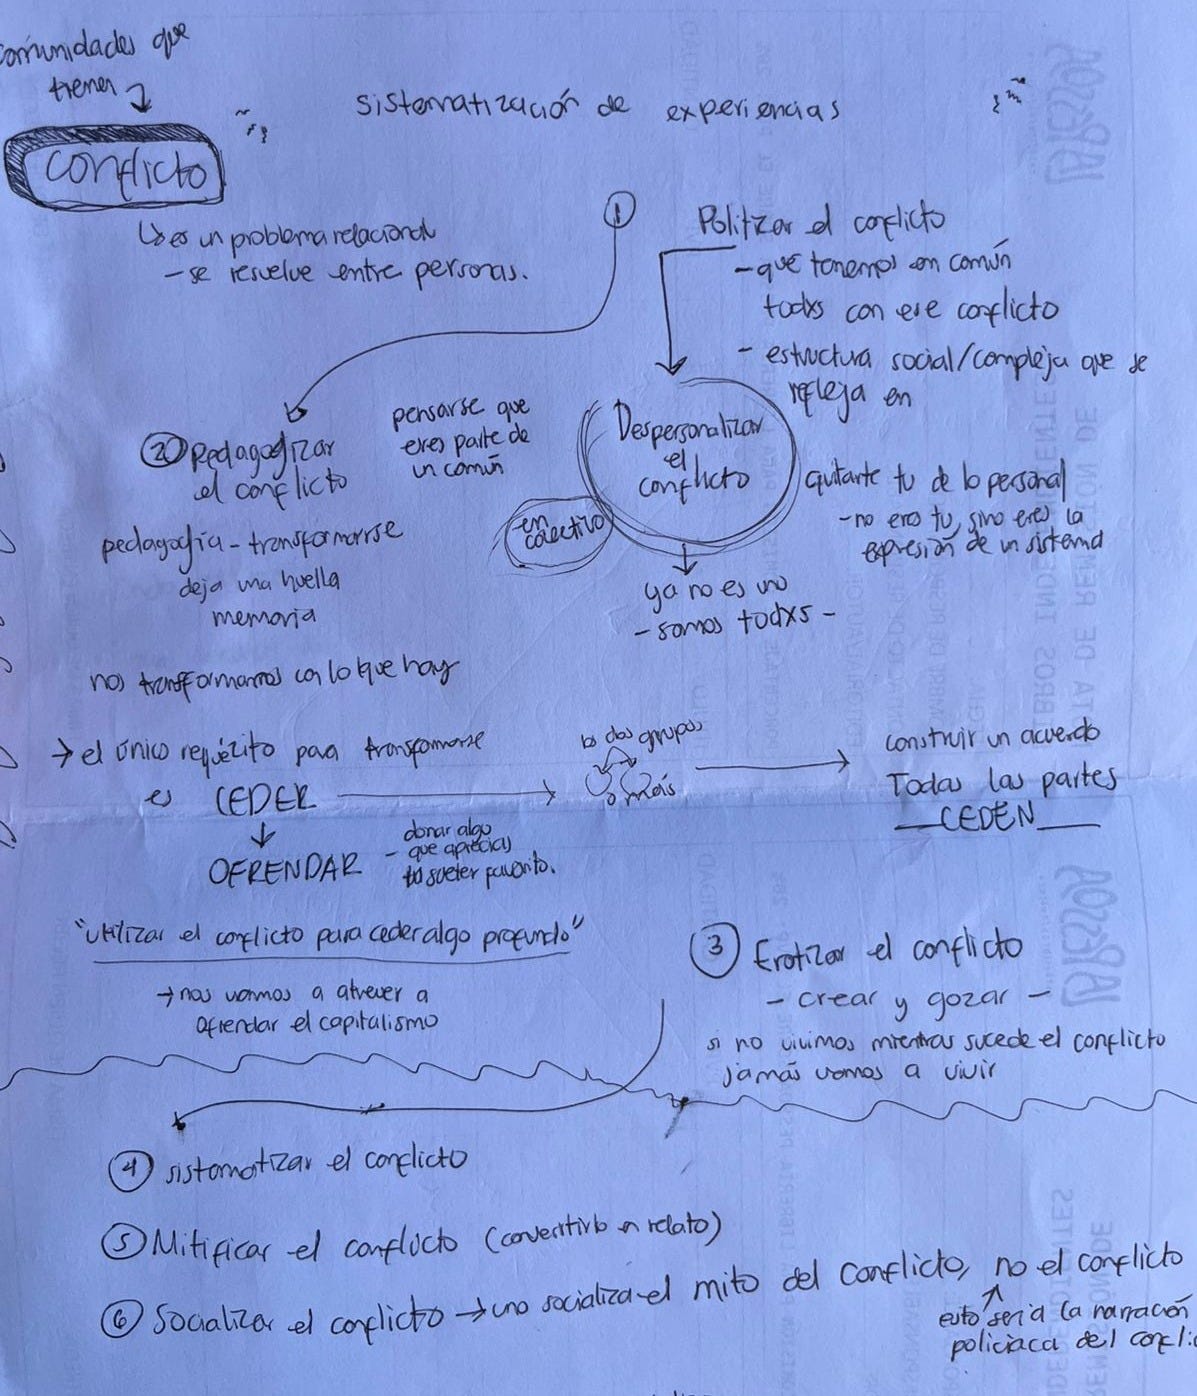 comunidades que
tienen
conflicto
sistematización de experiencias
↳ es un problema relacional
- se resuelve entre personas.
①
Politizar el conflicto
- que tenemos en común
todxs con ese conflicto
- estructura social/compleja que se
refleja en
Despersonalizar
el
conflicto
en
colectivo
quitarte tu de lo personal
- no eres tu, sino eres la
expresión de un sistema
ya no es uno
- somos todxs -
pensarse que
eres parte de
un común
② Pedagogizar
el conflicto
pedagogía - transformarse
deja una huella
memoria
nos transformamos con lo que hay
→ el único requízito para transformarse
es CEDER
↓
OFRENDAR - donar algo
que aprecias
tu sueter favorito.
los dos grupos
o más
construir un acuerdo
Todas las partes
CEDEN
"utilizar el conflicto para ceder algo profundo"
→ nos vamos a atrever a
ofrendar el capitalismo
③ Erotizar el conflicto
- crear y gozar -
si no vivimos mientras sucede el conflicto
jamás vamos a vivir
④ sistematizar el conflicto
⑤ Mitificar el conflicto (convertirlo en relato)
⑥ Socializar el conflicto → uno socializa el mito del conflicto, no el conflicto
esto sería la narración
policiaca del conflic
LAPESSOA
LAPESSOA